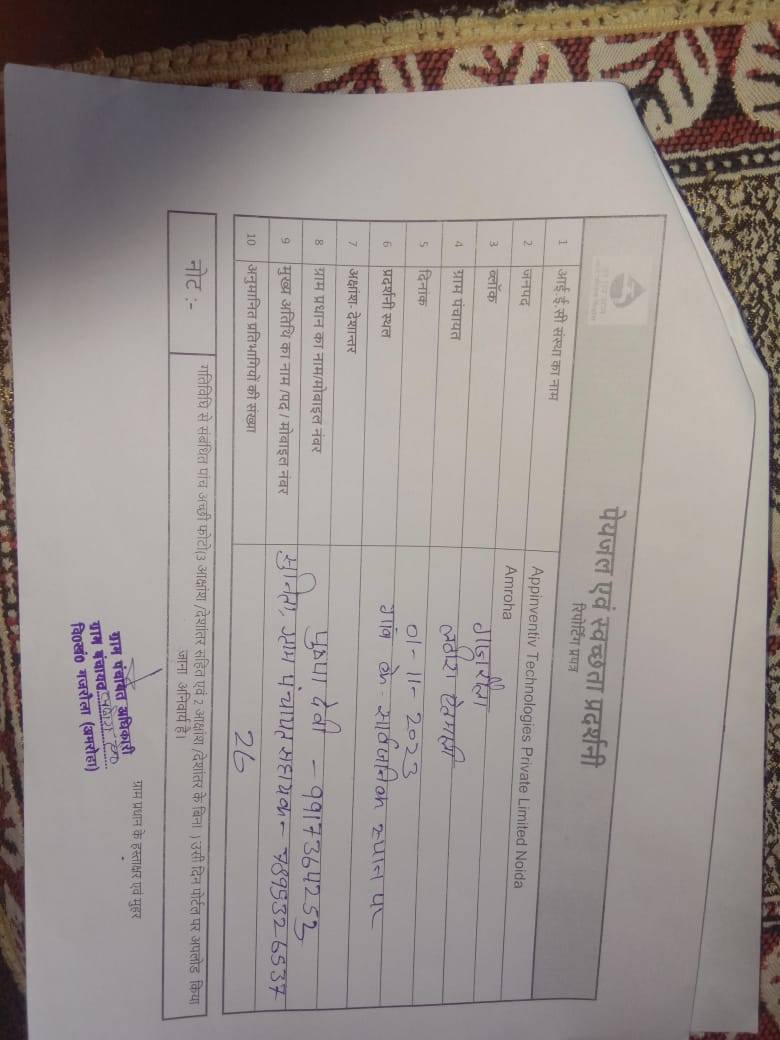 पेयजल एवं स्वच्छता प्रदर्शनी
रिपोर्टिंग प्रपत्र
1 आई.ई.सी संस्था का नाम Appinventiv Technologies Private Limited Noida
2 जनपद Amroha
3 ब्लॉक गजरौला
4 ग्राम पंचायत
5 दिनांक 01-11-2023
6 प्रदर्शनी स्थल गांव के सार्वजनिक स्थान पर
7 अक्षांश- देशान्तर
8 ग्राम प्रधान का नाम/मोबाइल नंबर पुष्पा देवी - 9917364253
9 मुख्य अतिथि का नाम /पद / मोबाइल नंबर ग्राम पंचायत सहायक -
10 अनुमानित प्रतिभागियों की संख्या 26
नोट :- गतिविधि से संबंधित पांच अच्छी फोटो(3 आक्षांश /देशांतर सहित एवं 2 आक्षांश /देशांतर के बिना ) उसी दिन पोर्टल पर अपलोड किया
जाना अनिवार्य है।
ग्राम प्रधान के हस्ताक्षर एवं मुहर
ग्राम पंचायत अधिकारी
ग्राम पंचायत
वि0खं0 गजरौला (अमरोहा)